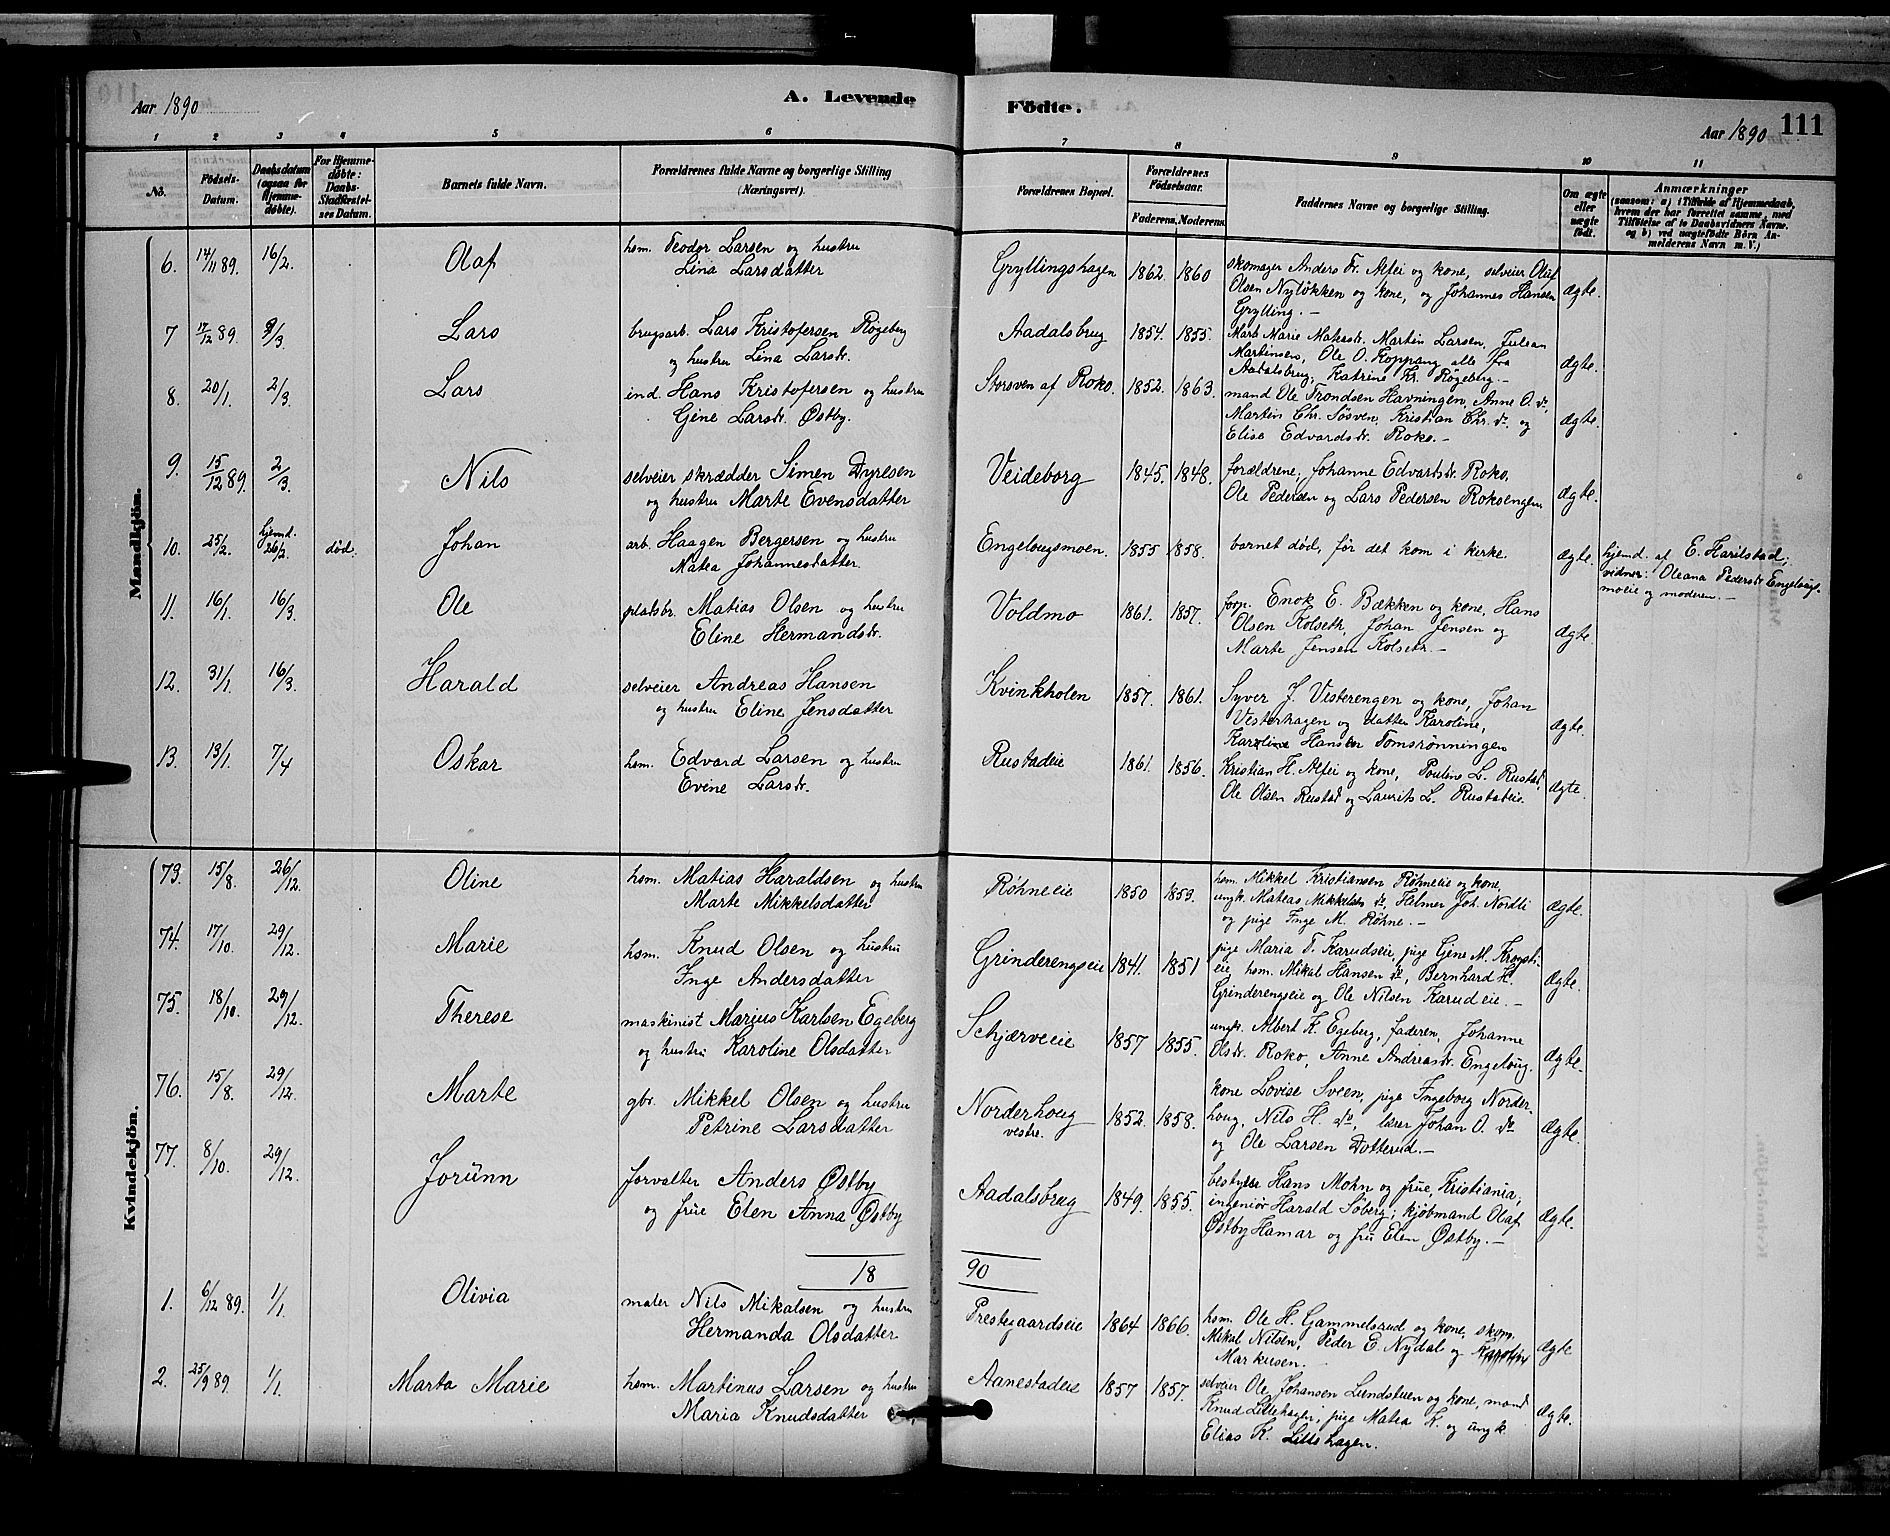 Aar 1890
A. Levende
Födte.
Aar 1890
111
1 2 3 4 5 6 7 8 9 10 11
No.
Födsels-Datum.
Daabsdatum (ogsaa for Hjemmedöbte).
For Hjemmedöbte: Daabs-Stadfæstelses Datum.
Barnets fulde Navn.
Forældrenes fulde Navne og borgerlige Stilling
(Næringsvei).
Forældrenes Bopæl.
Forældrenes Födselsaar.
Faderens. Moderens.
Faddernes Navne og borgerlige Stilling.
Om ægte eller uægte födt.
Anmærkninger
(saasom: a) i Tilfælde af Hjemmedaab,
hvem der har forrettet samme, med
Tilföielse af to Daabsvidners Navne.
og b) ved uægtefödte Börn Anmelderens Navn m. V.)
Mandkjön.
6. 14/11 89. 16/2. Olaf hsm. Teodor Larsen og hustru
Lina Larsdatter
Gryllingshagen 1862. 1860 skomager Anders Fr. Alfei og kone, selveier Oluf
Olsen Nyløkken og kone, og Johannes Hansen
Grylling. —
ægte.
7 17/12 89. 9/3. Lars brugsarb. Lars Kristofersen Røgeberg
og hustru Lina Larsdr.
Aadalsbrug 1854. 1855. Marie Martin Larsen, Julian
Martinsen, Ole O. Koppang alle fra
Aadalsbrug, Katrine Kr. Røgeberg. —
ægte.
8. 20/1. 2/3. Lars ind. Hans Kristofersen og hustru
Gine Larsdr. Østby.
Storsven af Roko. 1852. 1863. mand Ole Trondsen Havningen, Anne O. do,
Martin Chr. Søsven, Kristian Chr. do, og
Elise Edvardsdr. Roko. —
ægte.
9. 15/12 89. 2/3. Nils selveier skrædder Simen Dyresen
og hustru Marte Evensdatter
Veideborg 1845. 1848. forældrene, Johanne Edvartsdr. Roko,
Ole Pedersen og Lars Pedersen Roksengen
ægte.
10. 25/2. hjemd. 26/2. død. Johan arb. Haagen Bergersen og hustru
Matea Johannesdatter
Engelaugsmoen. 1855 1858. barnet død, før det kom i kirke. ægte.
hjemd. af E. Harilstad;
vidner: Oleana Pedersdr. Engelaugs-
moeie og moderen. —
11. 16/1. 16/3. Ole pladsbr. Matias Olsen og hustru
Eline Hermandsdr.
Voldmo 1861. 1857. forp. Enok E. Bækken og kone, Hans
Olsen Kolseth, Johan Jensen og
Marte Jensen Kolseth. —
ægte.
12. 31/1. 16/3. Harald selveier Andreas Hansen
og hustru Eline Jensdatter
Kvinkholen 1857. 1861. Syver J. Vesterengen og kone, Johan
Vesterhagen og datter Karoline,
Karoline Hansen Tomsrønningen
ægte.
13. 13/1. 7/4 Oskar hsm. Edvard Larsen og hustru
Evine Larsdr.
Rustadeie 1861. 1856. Kristian H. Alfei og kone, Pouline L. Rustad,
Ole Olsen Rustad og Laurits L. Rustadeie.
ægte.
Kvindekjön.
73. 15/8. 26/12. Oline hsm. Matias Haraldsen og hustru
Marte Mikkelsdatter
Røhneeie 1850 1859. hsm. Mikkel Kristiansen Røhneeie og kone,
ungk. Mateas Mikkelsen do, Helmer Joh. Nordli
og pige Inge M. Røhne. —
ægte.
74. 17/10. 29/12. Marie hsm. Knud Olsen og hustru
Inge Andersdatter
Grinderengseie 1841. 1851 pige Maria T. Karudseie, pige Gine M. Krogsti-
eie, hsm. Mikal Hansen do, Bernhard H.
Grinderengseie og Ole Nilsen Karudeie. —
ægte.
75. 18/10. 29/12. Therese maskinist Marius Karlsen Egeberg
og hustru Karoline Olsdatter
Schjærveeie 1857 1855. ungk. Albert K. Egeberg, faderen, Johanne
Olsdr. Roko, Anne Andreasdr. Engelaug.
ægte.
76. 15/8. 29/12. Marte gbr. Mikkel Olsen og hustru
Petrine Larsdatter
Norderhoug
vestre.
1852. 1858. kone Lovise Sveen, pige Ingeborg Norder-
houg, Nils H. do, lærer Johan O. do
og Ole Larsen Dotterud. —
ægte.
77. 8/10. 29/12. Jorünn forvalter Anders Østby
og frue Elen Anna Østby
Aadalsbrug 1849. 1855. bestyrer Hans Mohn og frue, Kristiania,
ingeniør Harald Søberg; kjøbmand Olaf
Østby Hamar og fru Elen Østby. —
ægte.
18 90
1. 6/12 89. 1/1. Olivia maler Nils Mikalsen og hustru
Hermanda Olsdatter
Prestegaardseie 1864 1866. hsm. Ole H. Gammelsrud og kone, skom.
Mikal Nilsen, Peder E. Nydal og Karoline
Markusen.
ægte
2. 25/9 89. 1/1. Marta Marie hsm. Martinus Larsen og hustru
Maria Knudsdatter
Aanestadeie 1857 1857. selveier Ole Johansen Lundstuen og kone, mand
Knud Lillehagen, pige Matea K. og ungk.
Elias K. Lillehagen.
ægte.